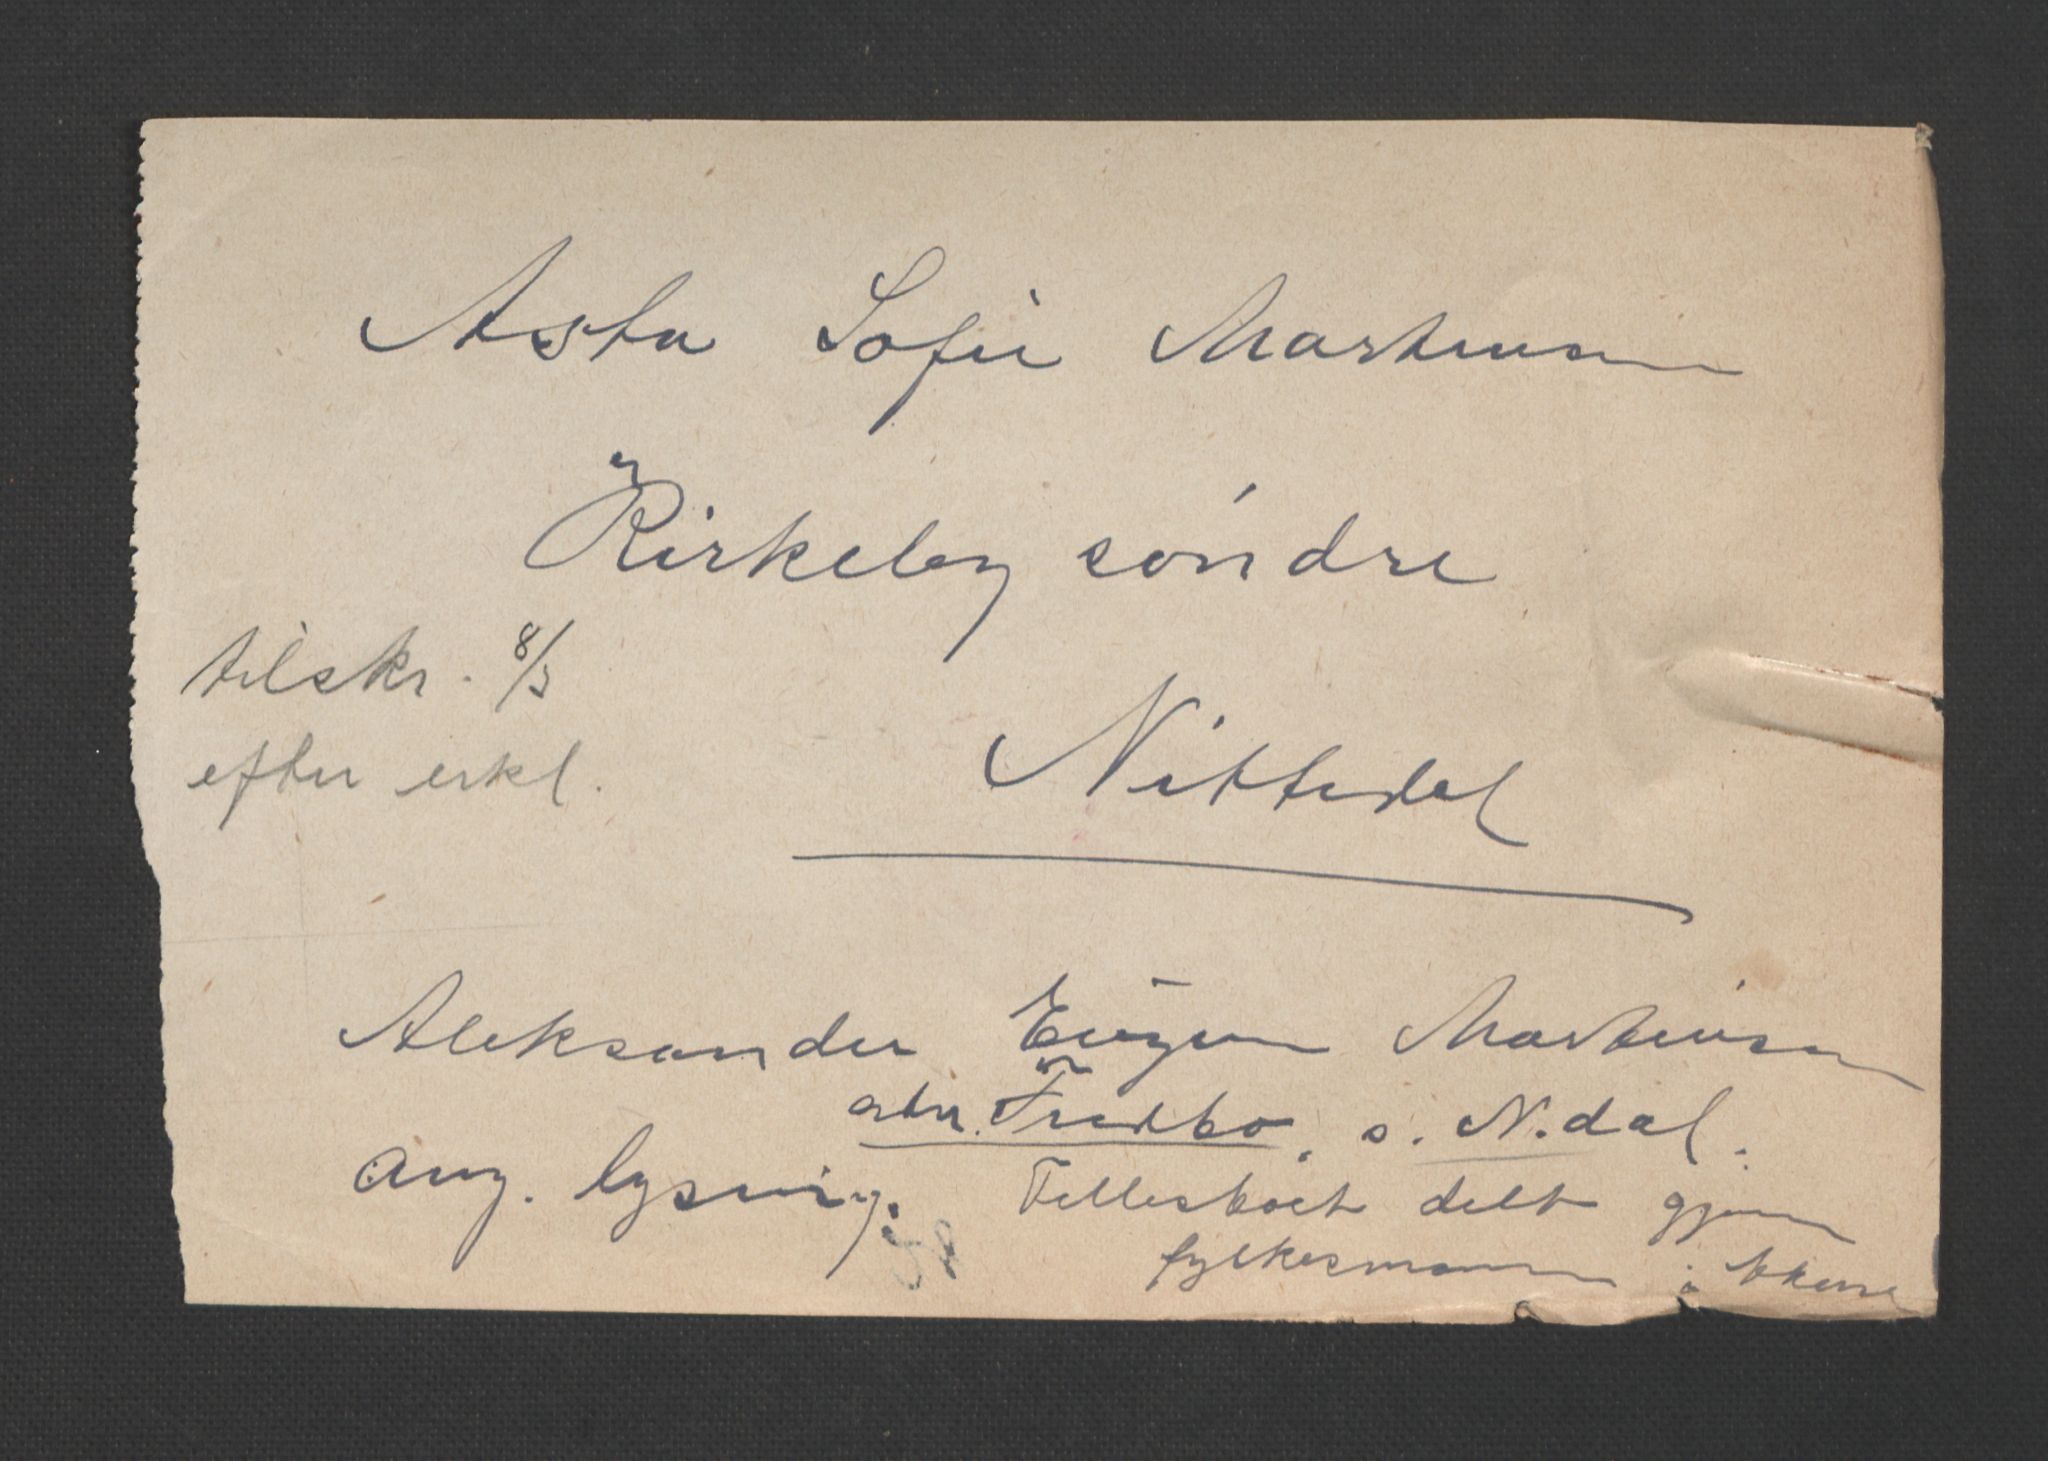 Asta Sofie Martinsen
Kirkeby søndre
tilskr. 8/3
efter erkl.
Nittedal
Aleksander Eugen Martinsen
adr. Fredbo, s. N.dal.
ang. lysning. Fellesboet delt gjennem
fylkesmannen i